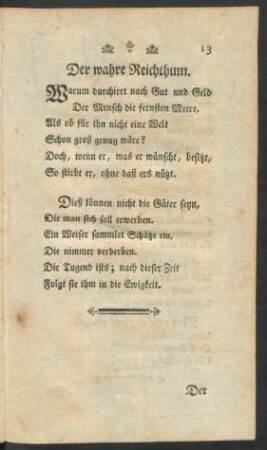 13
Der wahre Reichthum.
Warum durchirrt nach Gut und Geld
Der Mensch die fernsten Meere,
Als ob für ihn nicht eine Welt
Schon groß genug wäre?
Doch, wenn er, was er wünscht, besitzt,
So stirbt er, ohne daß ers nützt.
Dieß können nicht die Güter seyn,
Die man sich soll erwerben.
Ein Weiser sammlet Schätze ein,
Die nimmer verderben.
Die Tugend ists; nach dieser Zeit
Folgt sie ihm in die Ewigkeit.
Der